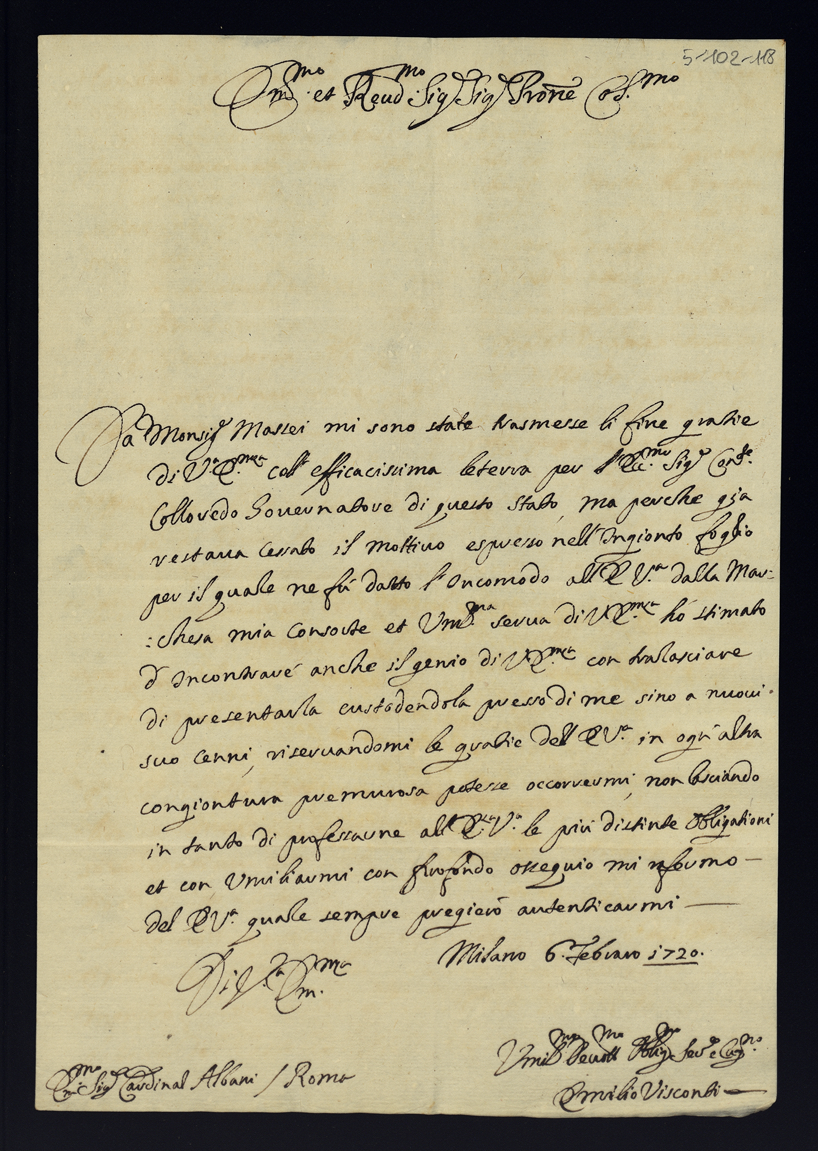 5-102-118
Em.mo et Reud.mo Sig.r Sig.r Prone Col.mo
Da Monsig.r Massei mi sono state trasmesse li fine gratie
di V.ra Em.za coll' efficacissima lettera per l'Ecc.mo Sig.r Con.te
Colloredo Gouernatore di questo Stato, ma perche gia
restaua cessato il mottiuo espresso nell'Ingionto foglio
per il quale ne fù datto l'Incomodo all'E.V.ra dalla Mar=
:chesa mia Consorte et Um.ma serua di V.Em.za hò stimato
d'Incontrare anche il genio di V.Em.za con tralasciare
di presentarla custodendola presso di me sino a nuoui
suo Cenni, riseruandomi le gratie dell E.V.ra in ogn'altra
congiontura premurosa potesse occorrermi, non lasciando
in tanto di professarne all'E.V.ra le più distinte Obligationi
et con Umiliarmi con profondo ossequio mi rafermo —
del E.V.ra quale sempre pregierò autenticarmi —
Milano 6. Febraro 1720.
Di V.ra Em.za
Umil.mo Deuot.mo Oblig.mo Ser.e e Cug.no
Em.mo Sig.r Cardinal Albani / Roma
Emilio Visconti —